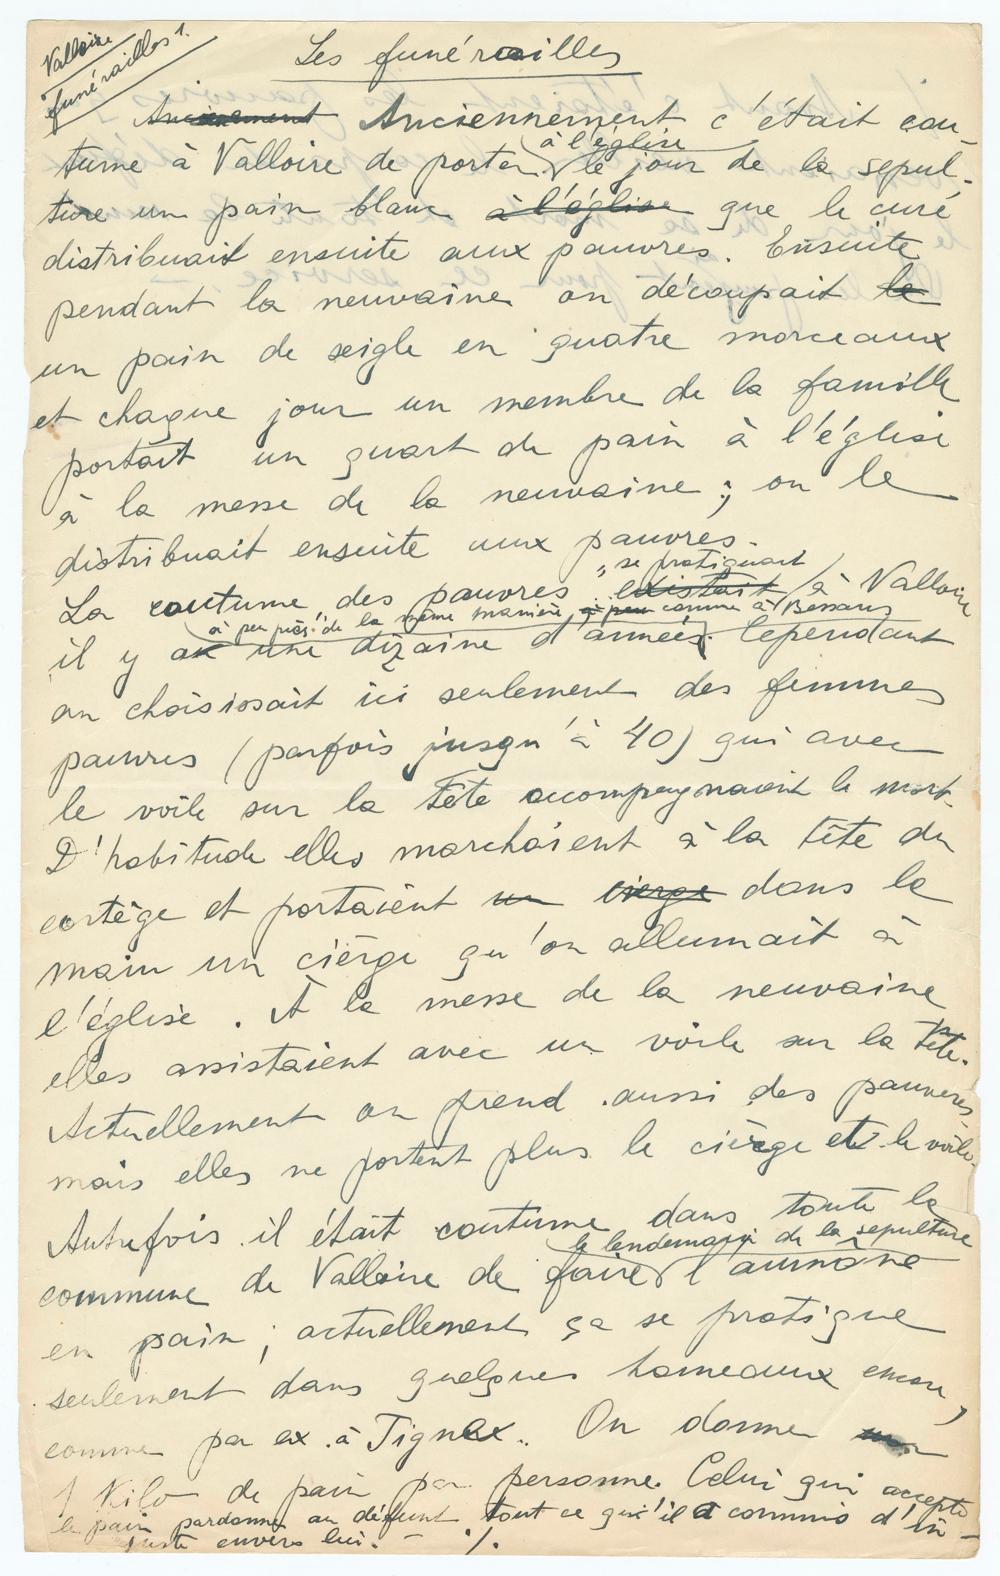 Valloire
funérailles 1.
Les funérailles
Anciennement Anciennement c'était cou-
à l'église
tume à Valloire de porter le jour de la sepul-
ture un pain blanc à l'église que le curé
distribuait ensuite aux pauvres. Ensuite
pendant la neuvaine on découpait le
un pain de seigle en quatre morceaux
et chaque jour un membre de la famille
portait un quart de pain à l'église
à la messe de la neuvaine ; on le
distribuait ensuite aux pauvres.
se pratiquait
La coutume „des pauvres„ existait à Valloire
à peu près de la même manière, à peu comme à Bessans
il y a une dizaine d'années. Cependant
on choisissait ici seulement des femmes
pauvres (parfois jusqu'à 40) qui avec
le voile sur la tête accompagnaient le mort.
D'habitude elles marchaient à la tête du
cortège et portaient un cierge dans la
main un cièrge qu'on allumait à
l'église. À la messe de la neuvaine
elles assistaient avec un voile sur la tête.
Actuellement on prend aussi des pauvres
mais elles ne portent plus le cièrge et le voile.
Autrefois il était coutume dans toute la
le lendemain de la sepulture
commune de Valloire de faire l'aumône
en pain ; actuellement ça se pratique
seulement dans quelques hameaux encore,
comme par ex. à Tignex. On donne
1 Kilo de pain par personne. Celui qui accepte
le pain pardonne au défunt tout ce qu'il a commis d'in-
juste envers lui. - ./.